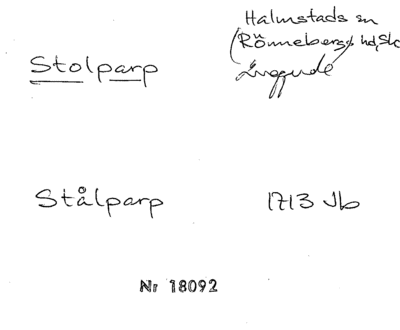 Halmstads sn
Stolparp (Rönnebergs hd, Sk
Luggude
Stålparp 1713 Jb
Nr 18092